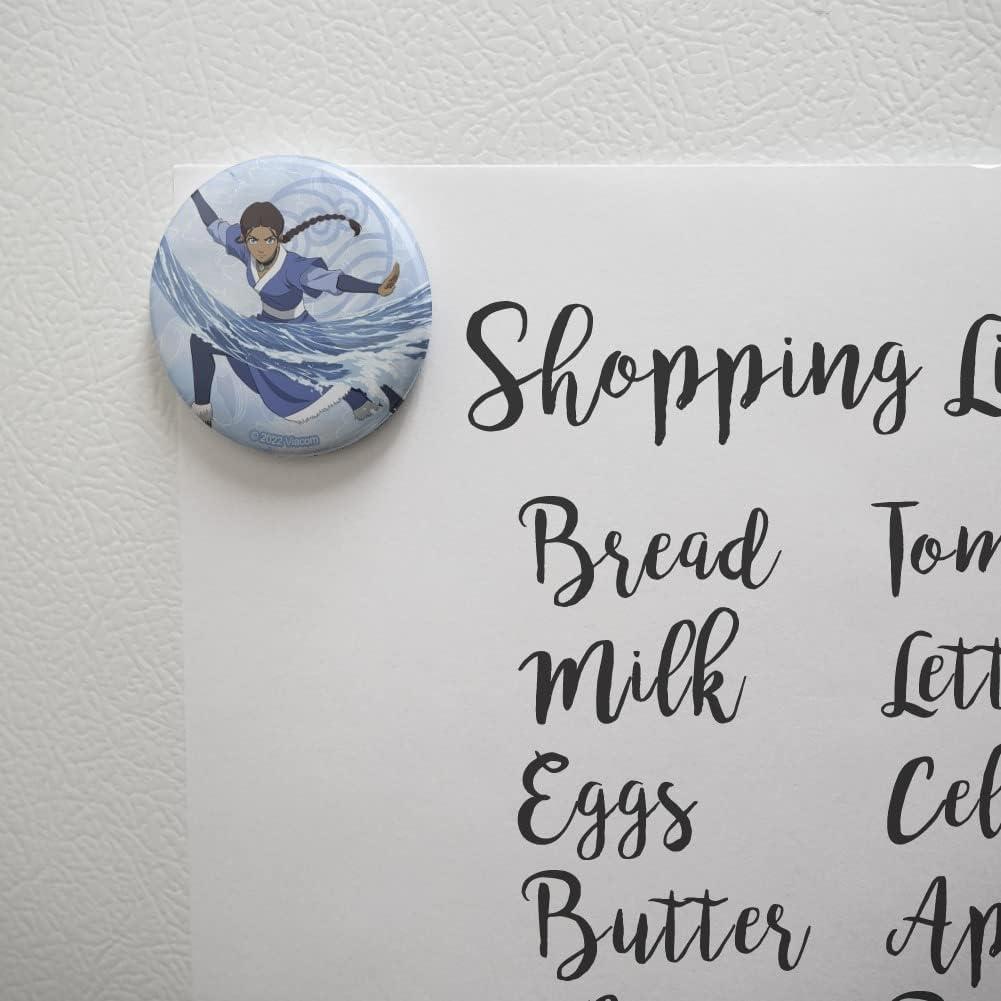 © 2022 Viacom
Shopping Li
Bread Tom
Milk Lett
Eggs Cel
Butter Ap